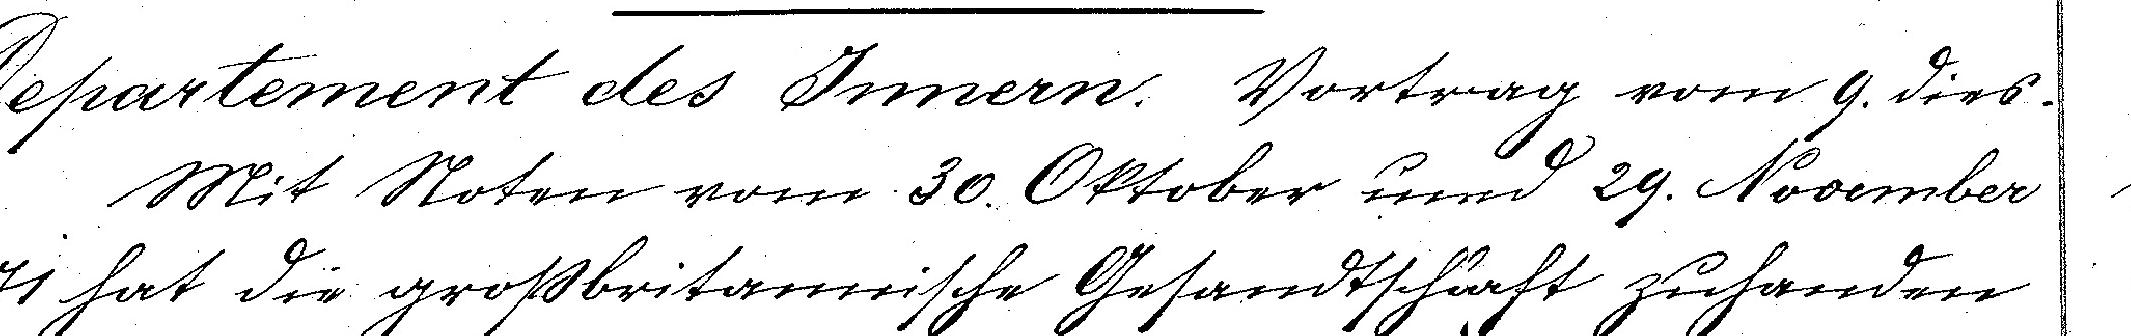 Departement des Innern. Vortrag vom 9. dies.
Mit Noten vom 30. Oktober und 29. November
hat die großbritannische Gesandtschaft zuhanden